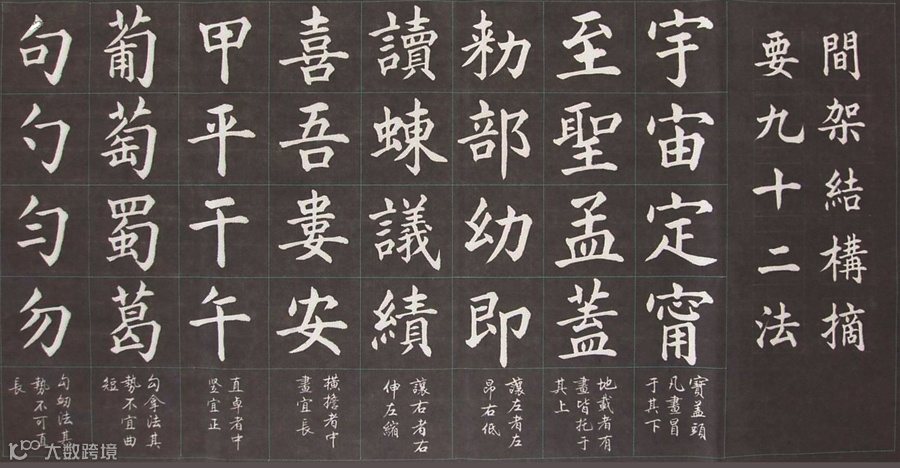 間架結構摘
要九十二法
宇宙定甯
寶蓋頭
凡畫冒
于其下
至聖孟蓋
地載者有
畫皆托于
其上
勑部幼即
讓左者左
昂右低
讀蝀議績
讓右者右
伸左縮
喜吾婁安
橫擔者中
畫宜長
甲平干午
直卓者中
竖宜正
葡萄蜀葛
勾拿法其
勢不宜曲
短
句勺勻勿
勾法其
勢不可直
長
大数跨境